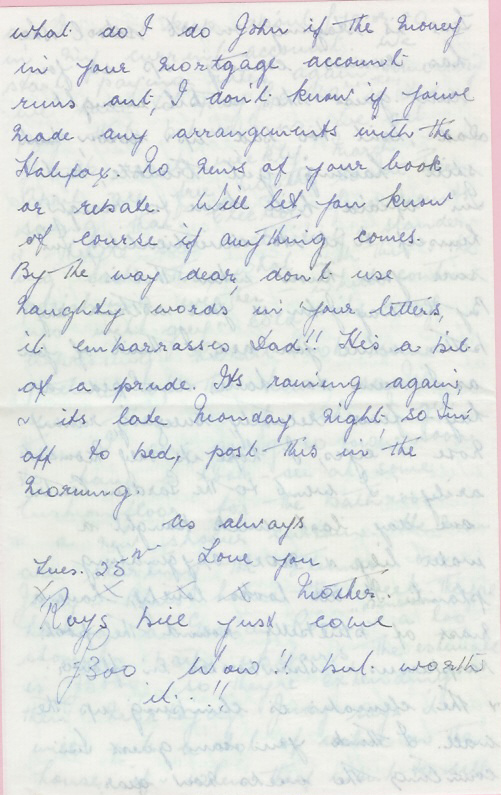 what do I do John if the money
in your mortgage account
runs out, I don't know if you've
made any arrangements with the
Halifax. No news of your book
or rebate. Will let you know
of course if anything comes.
By-the way dear, don't use
naughty words in your letters,
it embarrasses Dad!! He's a bit
of a prude. Its raining again,
& its late Monday night, so I'm
off to bed, post this in the
morning.
As always
Love you
Mother.
Tues. 25th
Roys bill just come
£300 Wow!! but worth
it..!!